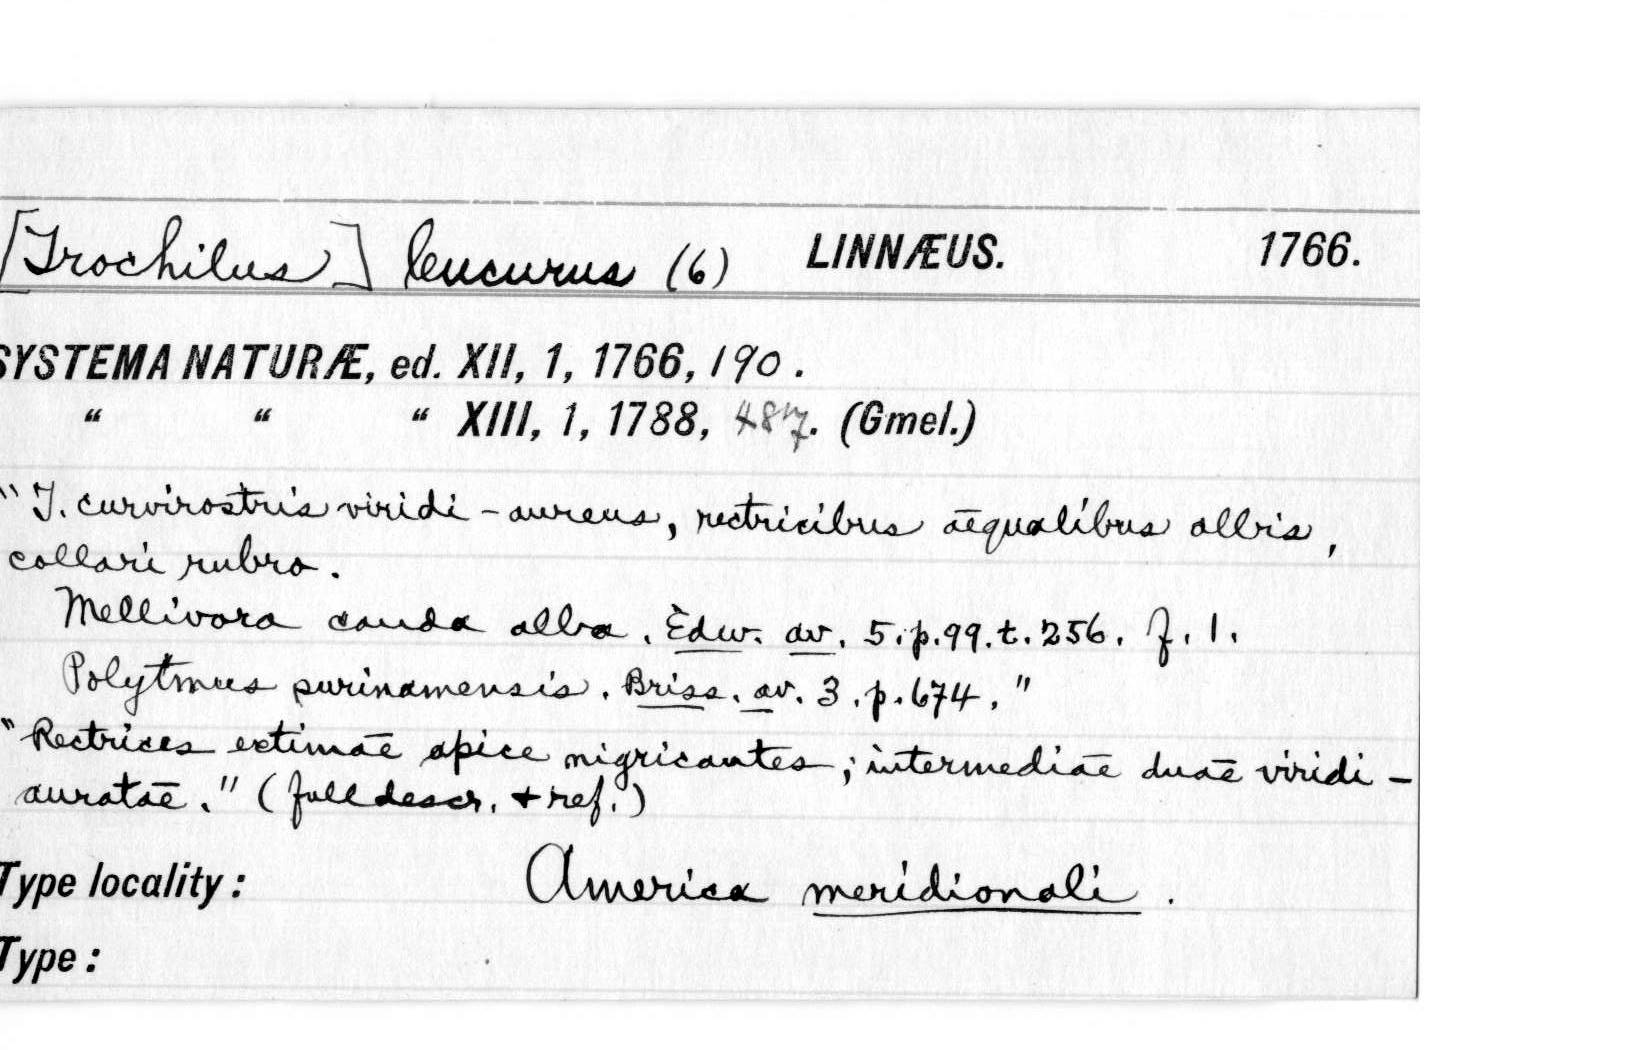 [Trochilus] leucurus (6) LINNÆUS. 1766.
SYSTEMA NATURÆ, ed. XII, 1, 1766, 190.
" " " XIII, 1, 1788, 487. (Gmel.)
"T. curvirostris viridi-aureus, rectricibus aequalibus albis,
collari rubro.
Mellivora cauda alba. Edw. av. 5.p.99.t.256. f.1.
Polytmus surinamensis. Briss. av. 3.p.674."
"Rectrices extimae apice nigricantes; intermediae duae viridi-
auratae." (full descr. + ref.)
Type locality: America meridionali.
Type: